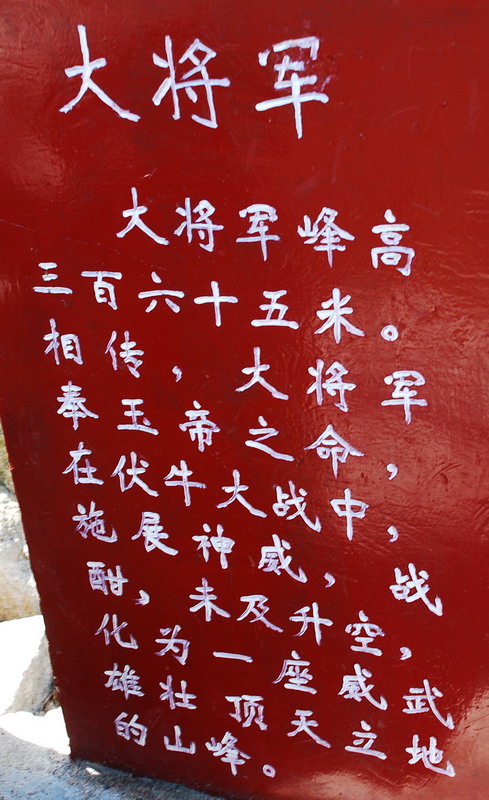 大将军
大将军峰高
三百六十五米。
相传，大将军，
奉玉帝之命，
在伏牛大战中，
施展神威，战
酣，未及升空，
化为一座威武
雄壮顶天立地
的山峰。